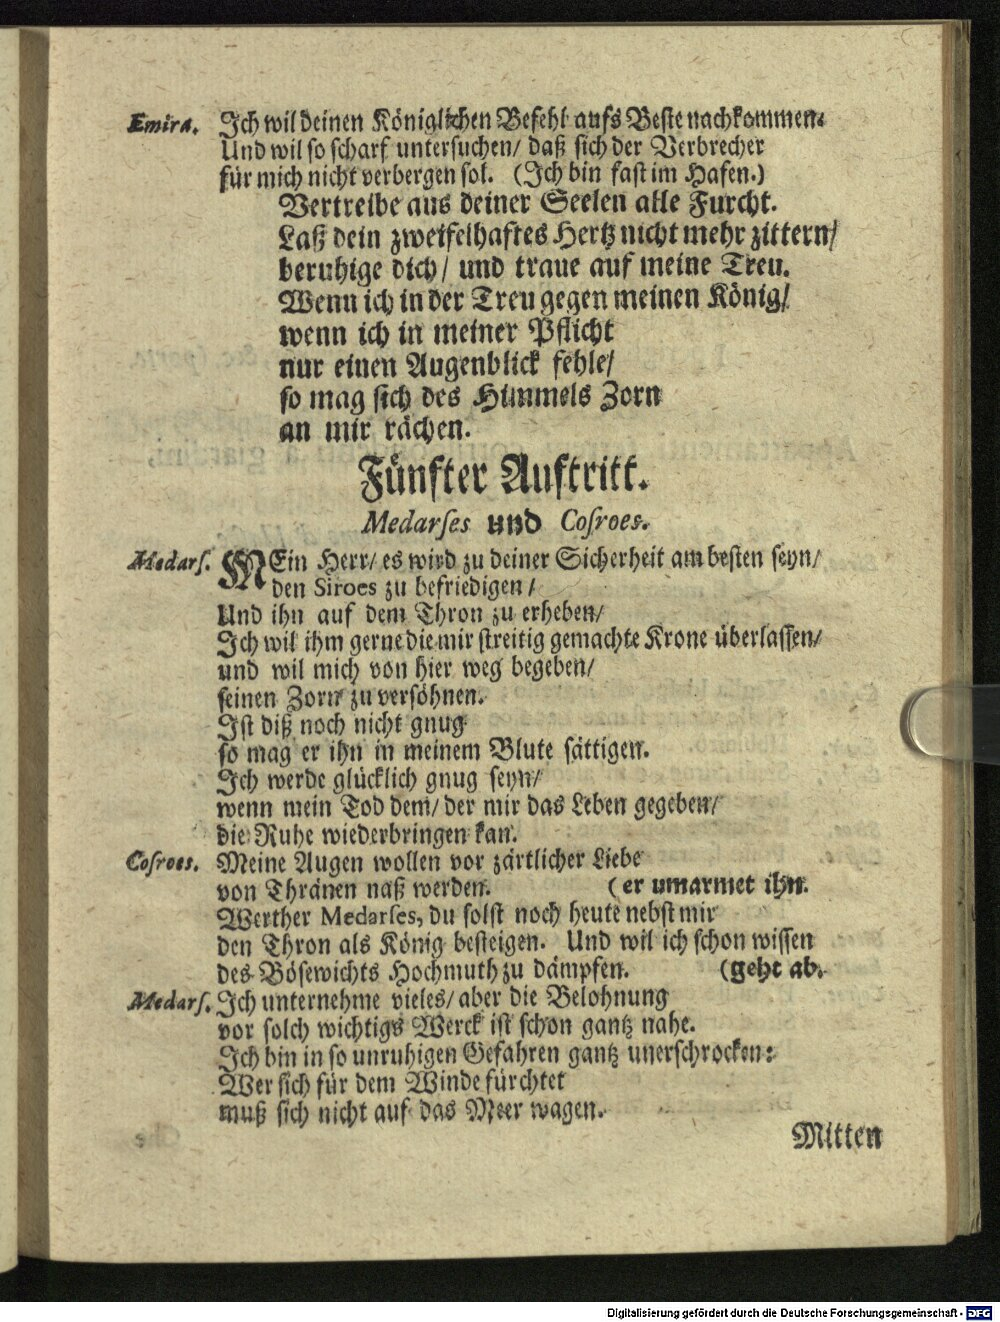 Emira. Ich wil deinen Königlichen Befehl aufs Beste nachkommen.
Und wil so scharf untersuchen/ daß sich der Verbrecher
für mich nicht verbergen sol. (Ich bin fast im Hafen.)
Vertreibe aus deiner Seelen alle Furcht.
Laß dein zweifelhaftes Hertz nicht mehr zittern/
beruhige dich/ und traue auf meine Treu.
Wenn ich in der Treu gegen meinen König/
wenn ich in meiner Pflicht
nur einen Augenblick fehle/
so mag sich des Himmels Zorn
an mir rächen.
Fünfter Auftritt.
Medarſes und Coſroes.
Medarſ. MEin Herr/ es wird zu deiner Sicherheit am besten seyn/
den Siroes zu befriedigen/
Und ihn auf dem Thron zu erheben/
Ich wil ihm gerne die mir streitig gemachte Krone überlassen/
und wil mich von hier weg begeben/
seinen Zorn zu versöhnen.
Ist diß noch nicht gnug
so mag er ihn in meinem Blute sättigen.
Ich werde glücklich gnug seyn/
wenn mein Tod dem/ der mir das Leben gegeben/
die Ruhe wiederbringen kan.
Coſroes. Meine Augen wollen vor zärtlicher Liebe
von Thränen naß werden. (er umarmet ihn.
Werther Medarſes, du solst noch heute nebst mir
den Thron als König besteigen. Und wil ich schon wissen
des Bösewichts Hochmuth zu dämpfen. (geht ab.
Medarſ. Ich unternehme vieles/ aber die Belohnung
vor solch wichtigs Werck ist schon gantz nahe.
Ich bin in so unruhigen Gefahren gantz unerschrocken:
Wer sich für dem Winde fürchtet
muß sich nicht auf das Meer wagen.
Mitten
Digitalisierung gefördert durch die Deutsche Forschungsgemeinschaft - DFG